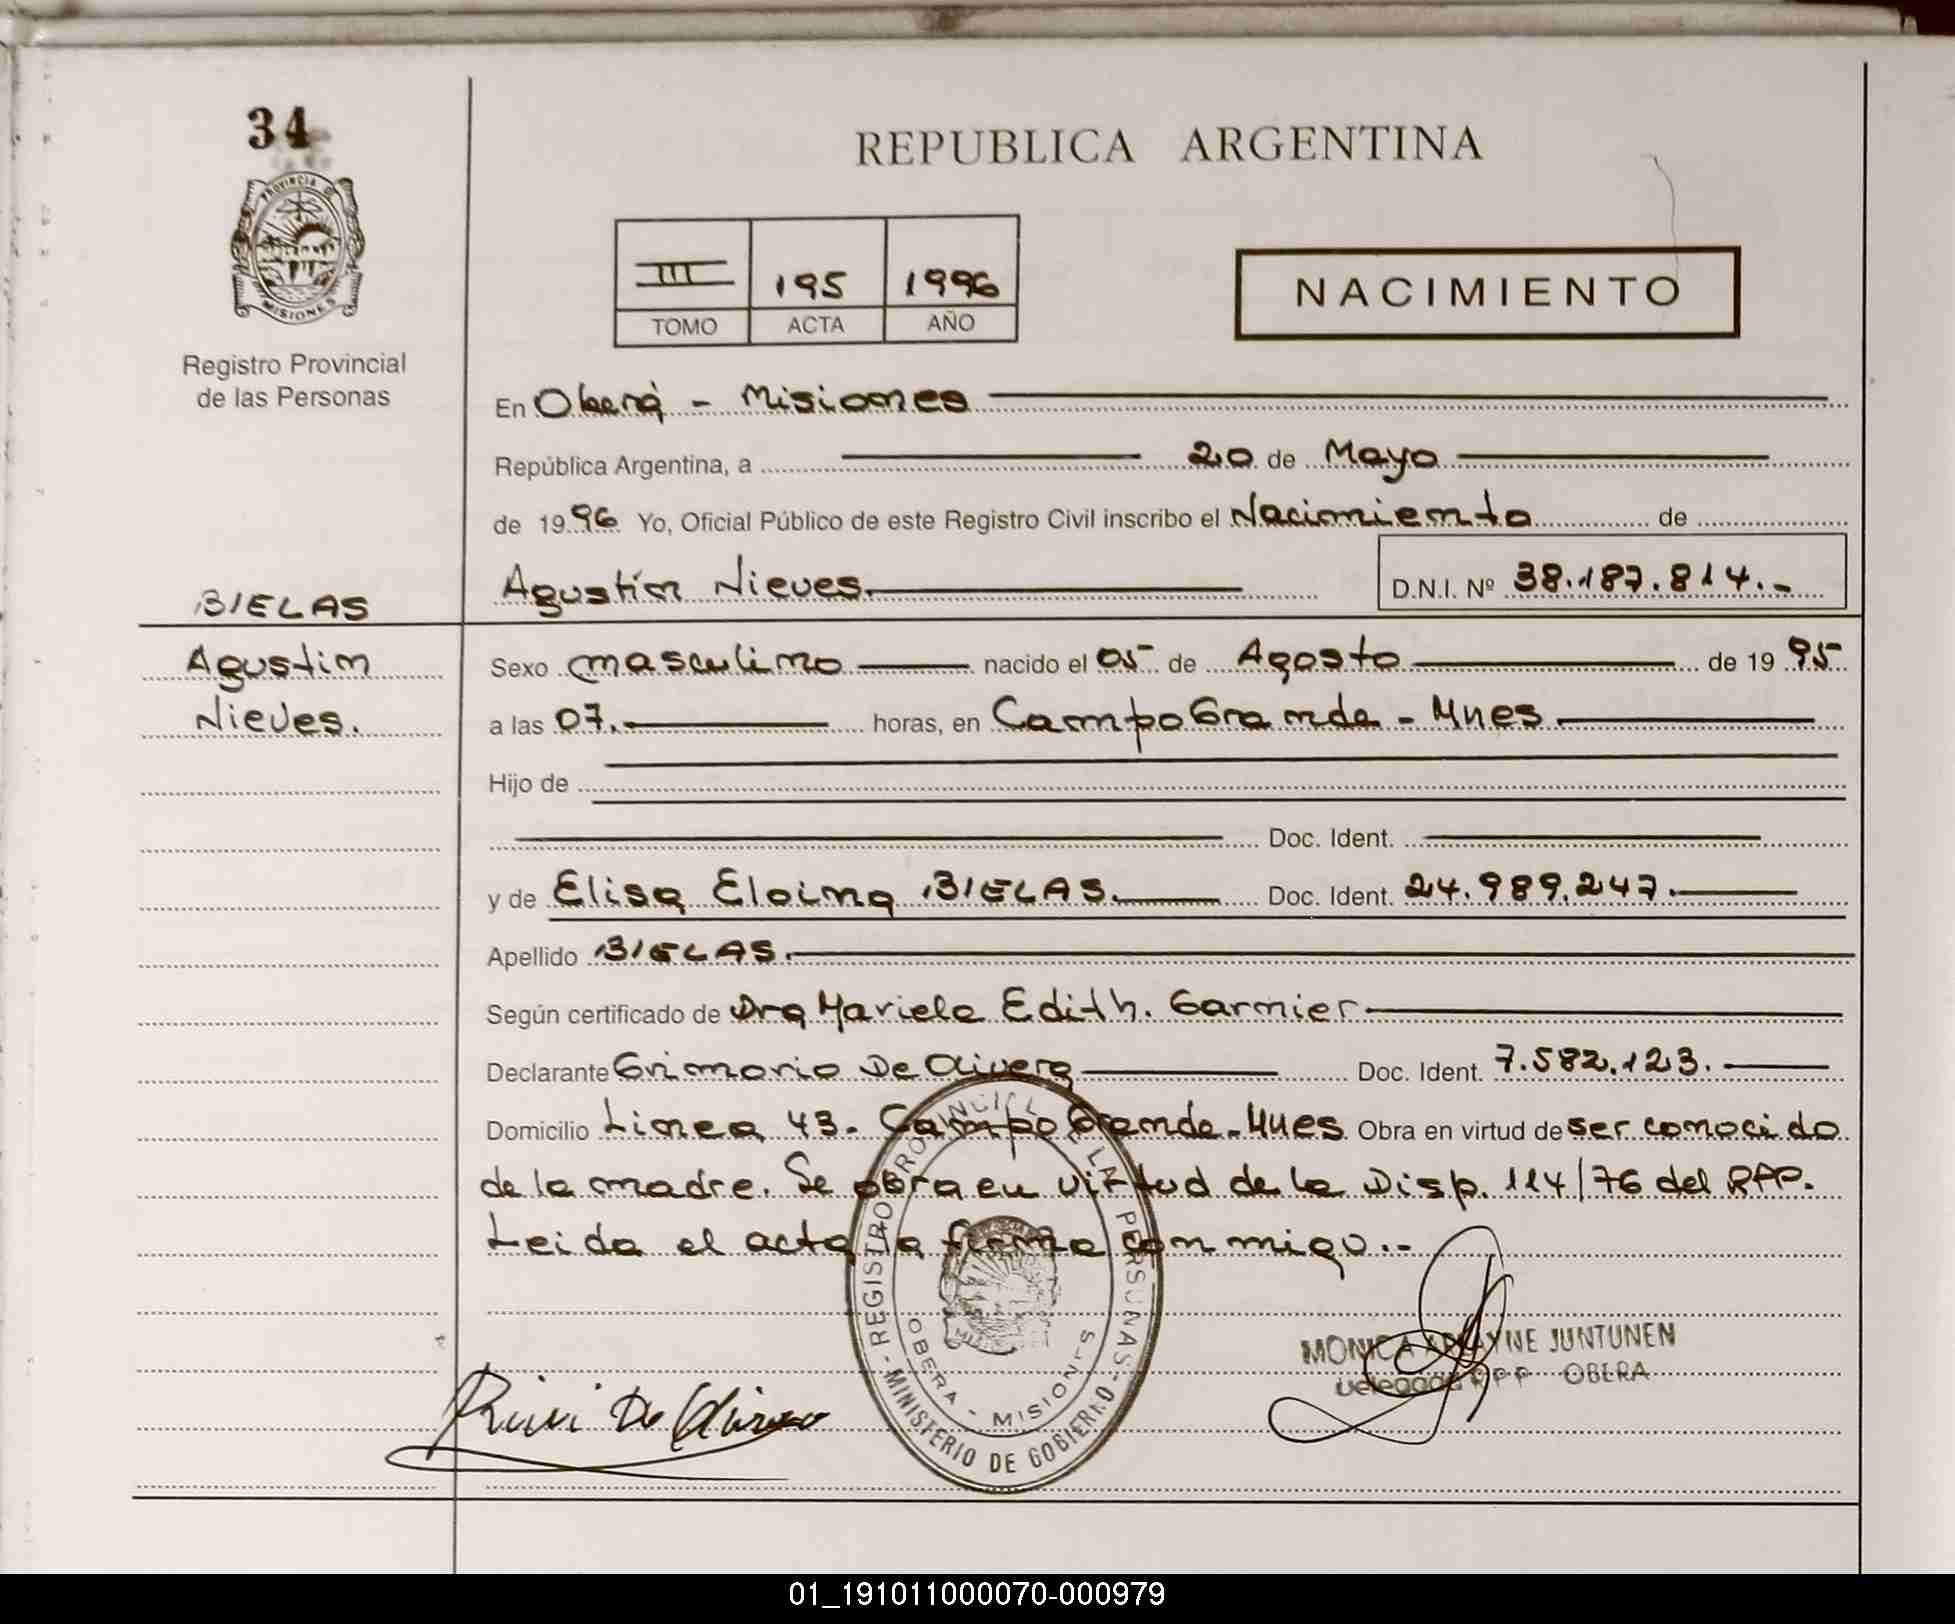 34
PROVINCIA D
MISIONES
Registro Provincial
de las Personas
REPUBLICA ARGENTINA
III 195 1996
TOMO ACTA AÑO
NACIMIENTO
En Oberá - Misiones
República Argentina, a 20 de Mayo
de 1996 Yo, Oficial Público de este Registro Civil inscribo el Nacimiento de
Agustín Nieves. D.N.I. Nº 38.187.814.-
BIELAS
Agustin
Nieves.
Sexo masculino nacido el 05 de Agosto de 1995
a las 07. horas, en Campo Grande - Mnes
Hijo de
Doc. Ident.
y de Elisa Eloina BIELAS. Doc. Ident. 24.989.247.
Apellido BIELAS.
Según certificado de Dra Mariela Edith. Garnier
Declarante De Olivera Doc. Ident. 7.582.123.
Domicilio Linea 43. Campo Grande - Mnes Obra en virtud de ser conocido
de la madre. Se obra en virtud de la Disp. 114/76 del RPP.
Leida el acta la firma conmigo.-
REGISTRO PROVINCIAL LA PERSONAS
OBERA - MISIONES
MINISTERIO DE GOBIERNO
MONICA JUNTUNEN
Delegada RPP OBERA
De
01_191011000070-000979